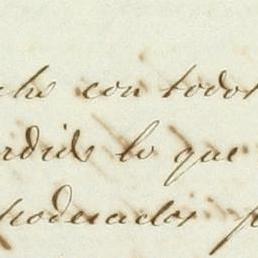 che con todos
rdido lo que
poderados p